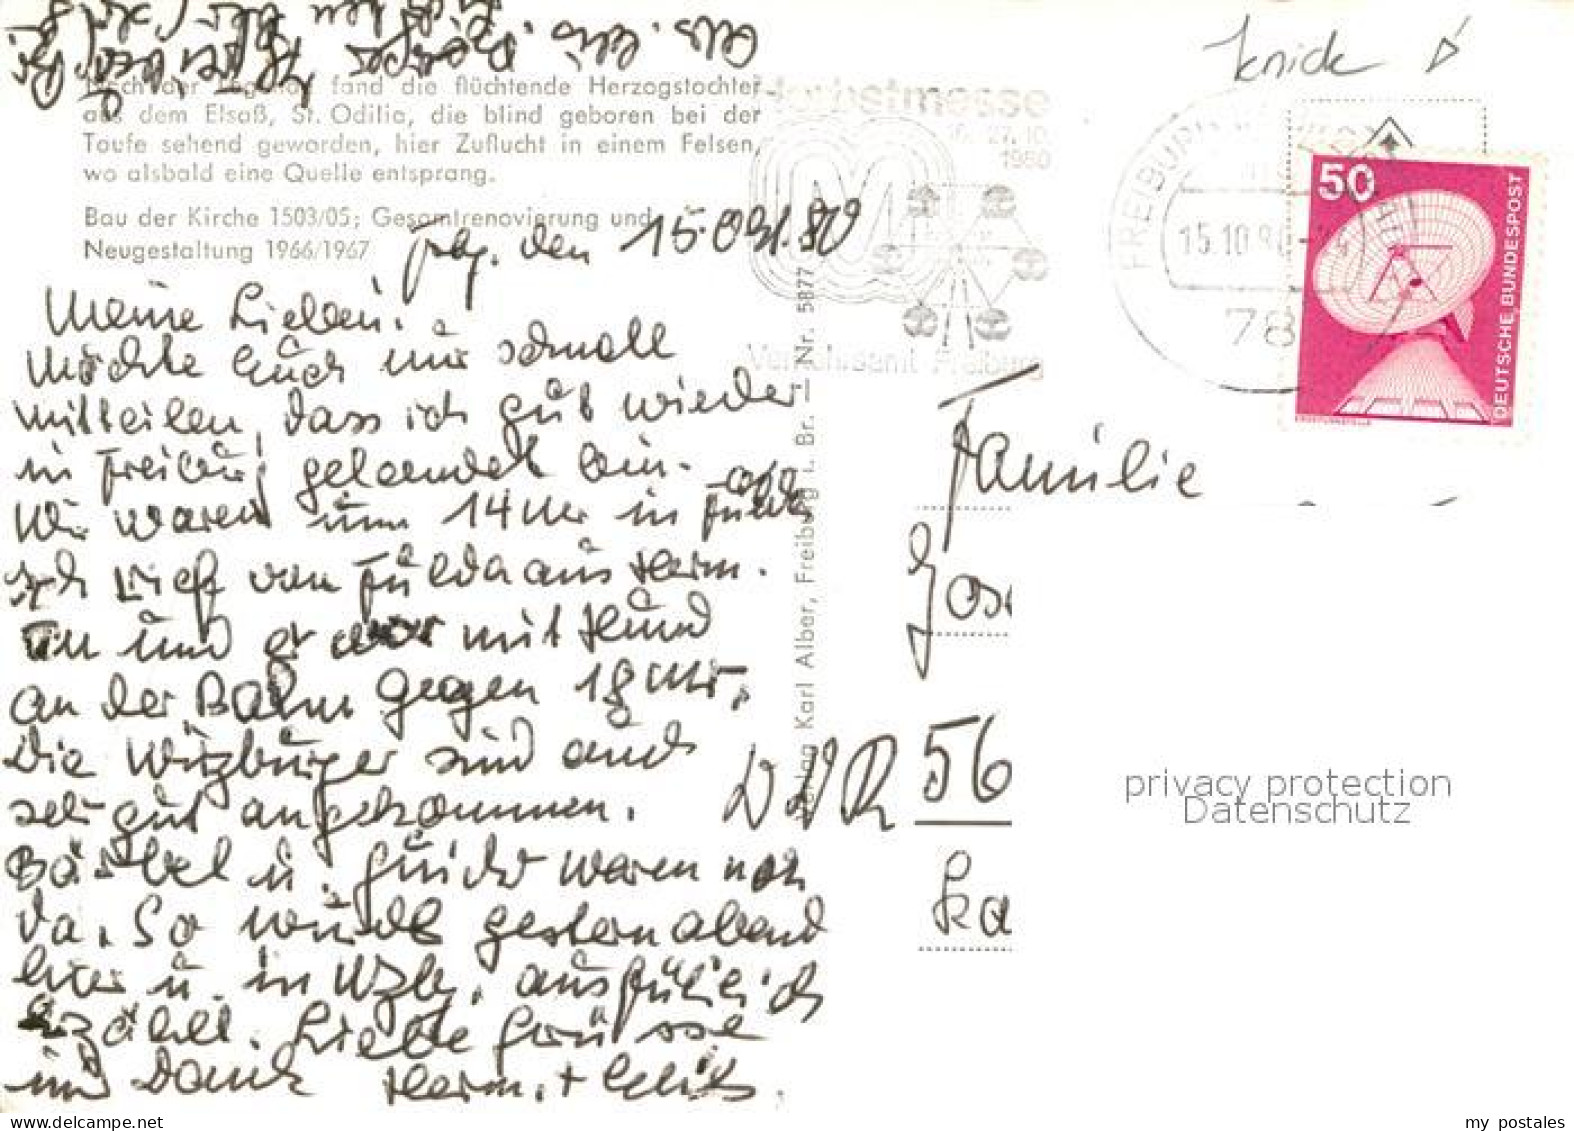 Nach der Legende fand die flüchtende Herzogstochter
aus dem Elsaß, St. Odilia, die blind geboren bei der
Taufe sehend geworden, hier Zuflucht in einem Felsen,
wo alsbald eine Quelle entsprang.
Bau der Kirche 1503/05; Gesamtrenovierung und
Neugestaltung 1966/1967
Frbg. den
Meine Lieben!
Möchte Euch nur schnell
mitteilen, dass ich gut wieder
in Freiburg gelandet bin.
Wir waren um 14 Uhr in Fulda
Ich rief von Fulda aus Herm.
an und er war mit Hund
an der Bahn gegen 18 Uhr.
Die Würzburger sind auch
sehr gut angekommen.
Bärbel u. Guido waren noch
da. So wurde gestern abend
hier u. in Wzbg. ausführlich
erzählt. Liebe Grüsse
und Dank Herm. +
Verlag Karl Alber, Freiburg i. Br. — Nr. 5877
Herbstmesse
27.10.
1980
M
Verkehrsamt Freiburg
FREIBURG
15.10.80
78
knick
50
DEUTSCHE BUNDESPOST
ERDEFUNKSTELLE
Familie
DDR 56
privacy protection
Datenschutz
my postales